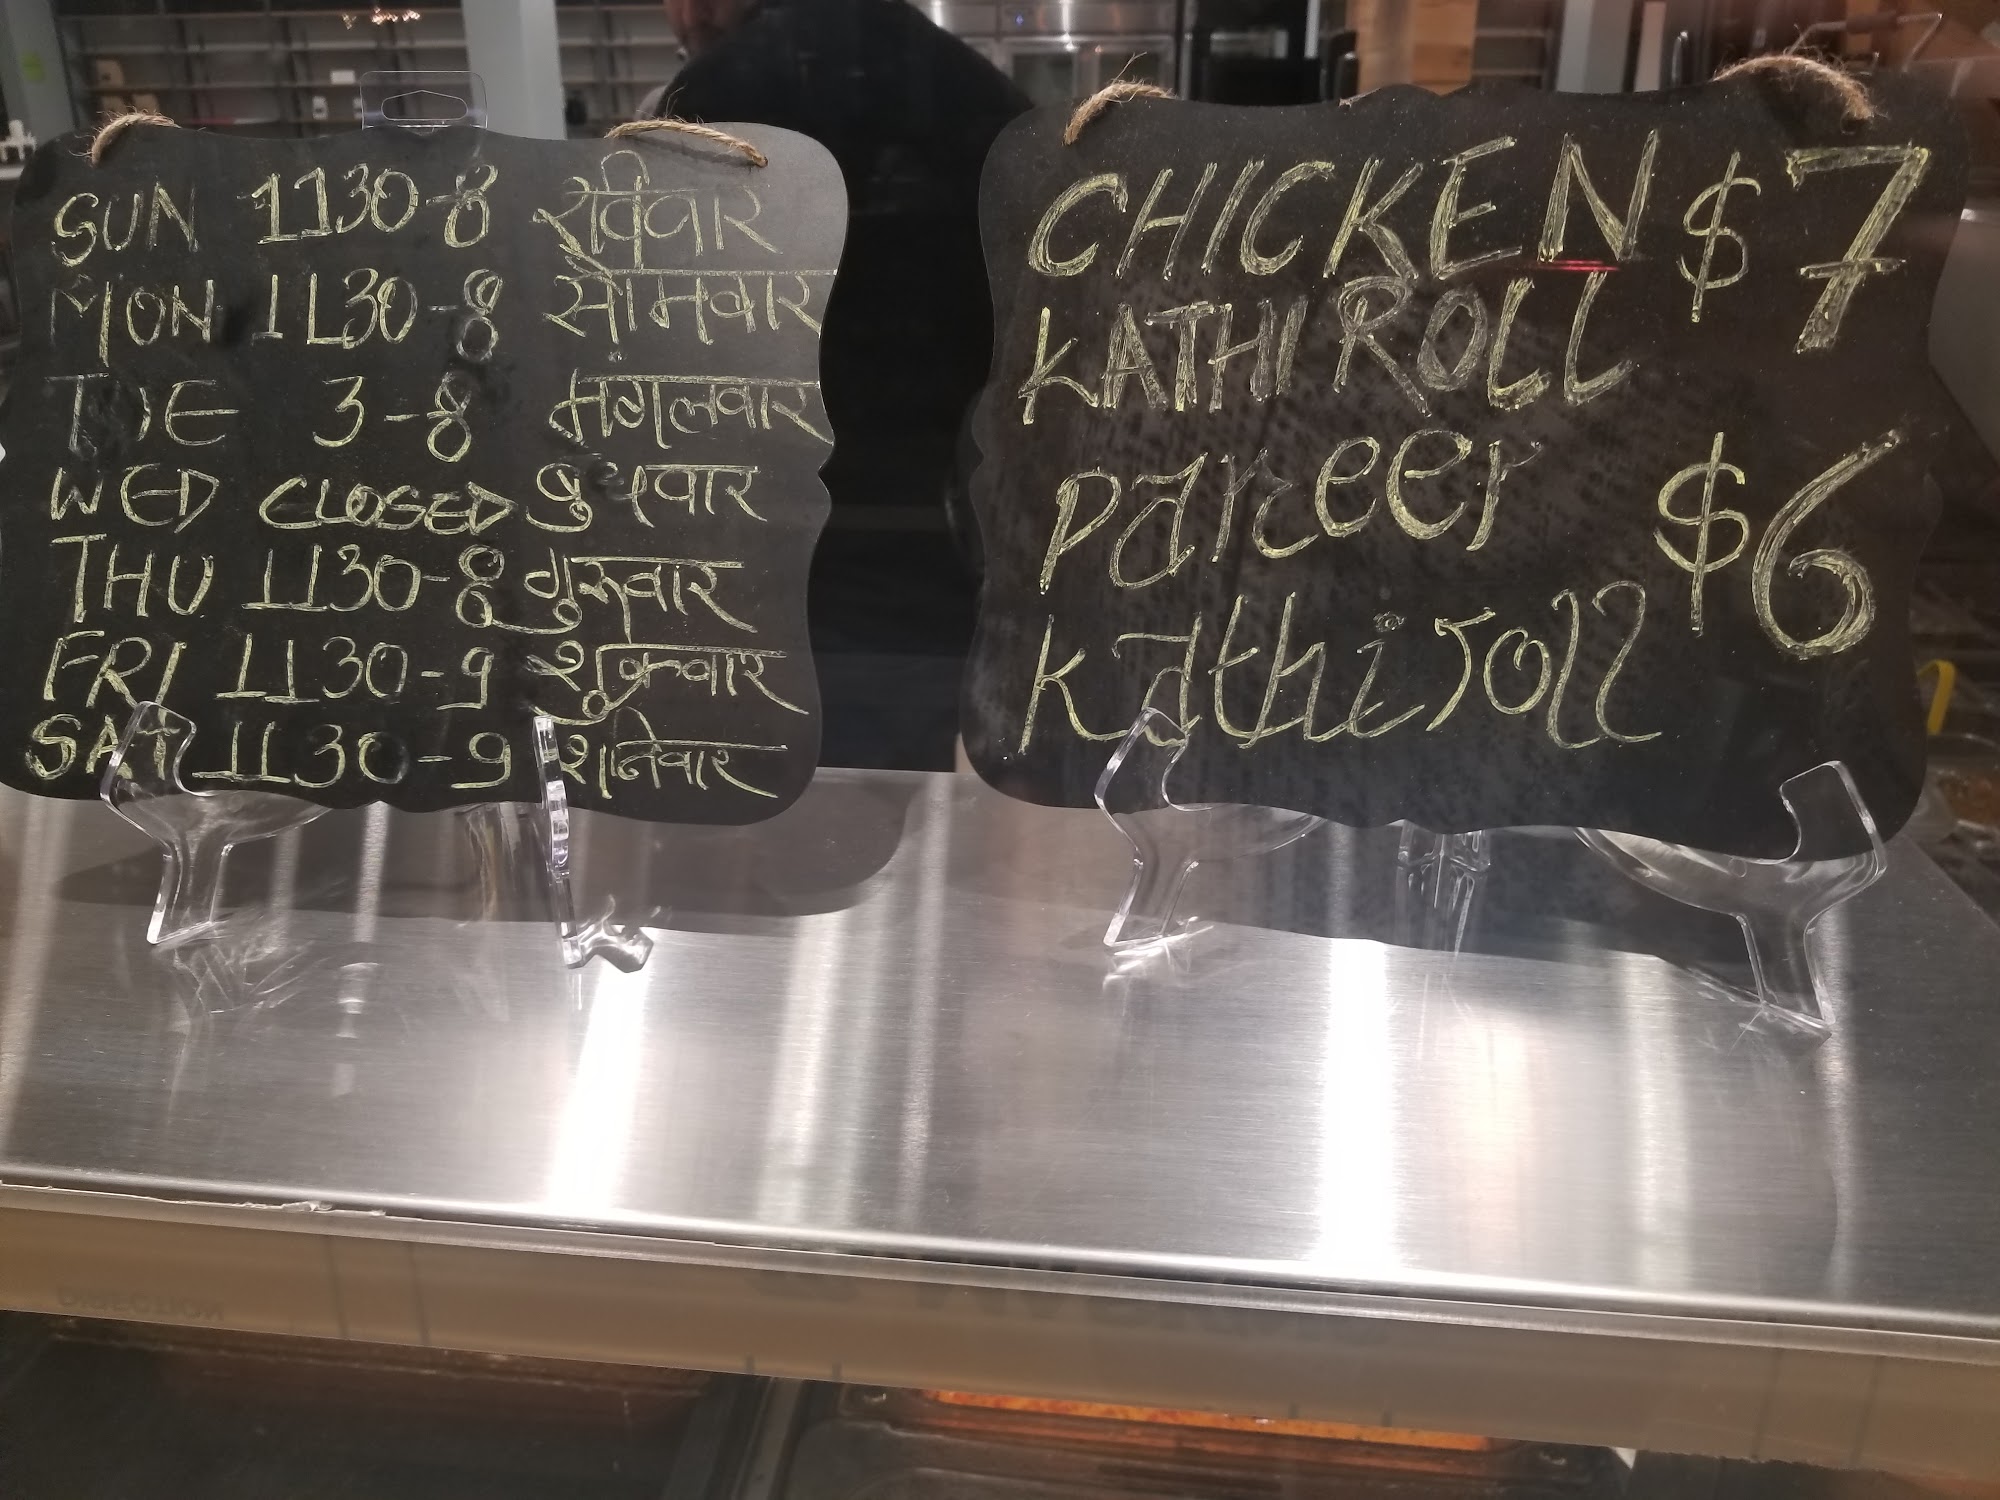 SUN 1130-8 रविवार
MON 1130-8 सोमवार
TUE 3-8 मंगलवार
WED CLOSED बुधवार
THU 1130-8 गुरुवार
FRI 1130-9 शुक्रवार
SAT 1130-9 शनिवार
CHICKEN $7
KATHI ROLL
Paneer $6
Kathi roll